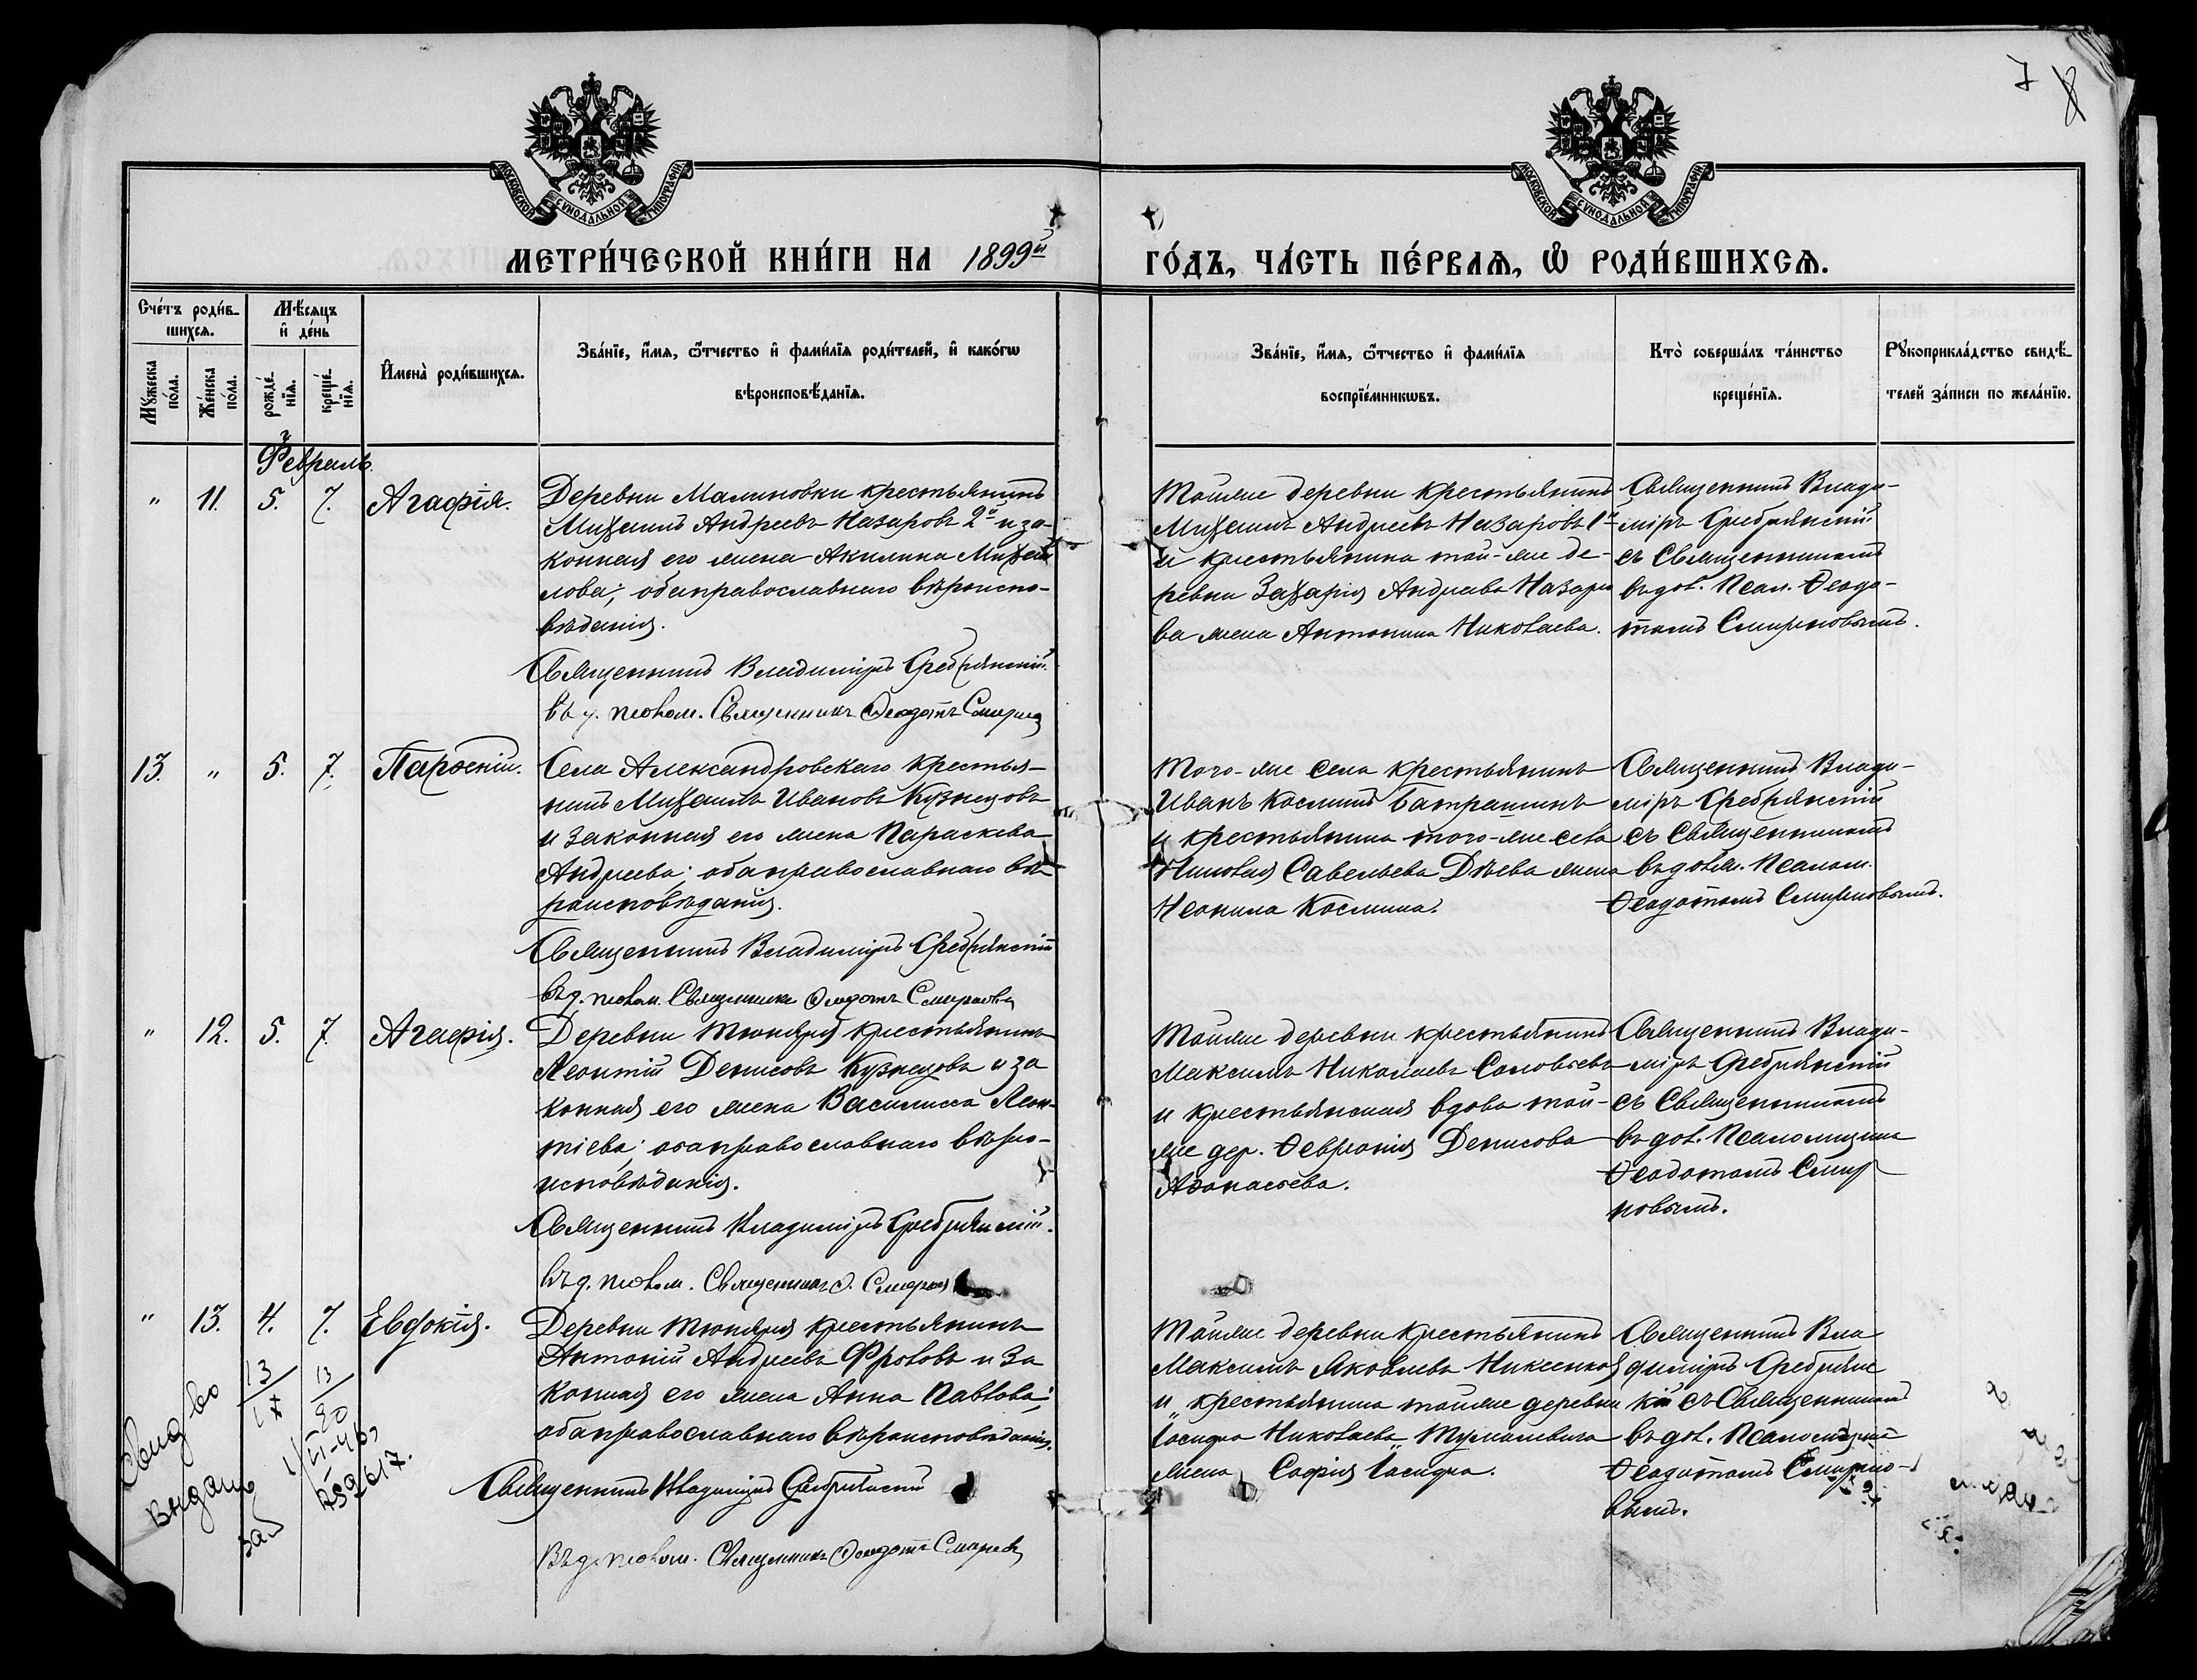 7
МОСКОВСКОЙ СУНОДАЛЬНОЙ ТИПОГРАФІИ
МОСКОВСКОЙ СУНОДАЛЬНОЙ ТИПОГРАФІИ
МЕТРИ́ЧЕСКОЙ КНИ́ГИ НА 1899й
ГО́ДЪ, ЧА́СТЬ ПЕ́РВАѦ, Ѽ РОДИ́ВШИХСѦ.
Сче́тъ роди́в-
шихсѧ.
Мѣ́сѧцъ
и҆ де́нь
Мꙋ́жеска по́ла.
Же́нска по́ла.
рожде́-нїѧ.
креще́-нїѧ.
И҆мена̀ роди́вшихсѧ.
Зва́нїе, и҆́мѧ, ѻ҆́тчество и҆ фами́лїѧ роди́телей, и҆ како́гѡ
вѣроисповѣ́данїѧ.
Зва́нїе, и҆́мѧ, ѻ҆́тчество и҆ фами́лїѧ
воспрїе́мникѡвъ.
Кто̀ соверша́лъ та́инство
креще́нїѧ.
Рꙋкоприкла́дство свидѣ́-
телей за́писи по жела́нїю.
Февраль.
" 11. 5. 7. Агафія.
Деревни Малиновки крестьянинъ
Михаилъ Андреевъ Назаровъ 2й и за-
конная его жена Акилина Михай
лова; оба православнаго вѣроиспо-
вѣданія.
Священникъ Владиміръ Сребрянскій.
Священникъ Ѳеодотъ Смирнов
Тойже деревни крестьянинъ
Михаилъ Андреевъ Назаровъ 1й
и крестьянина той-же де-
ревни Захарія Андреева Назаро
ва жена Антонина Николаева.
Священникъ Влади-
міръ Сребрянскій
съ Священникомъ
въ дол. Псал. Ѳеодо-
томъ Смирновымъ.
13. " 5. 7. Парѳеній.
Села Александровскаго крестья-
нинъ Михаилъ Ивановъ Кузнецовъ
и законная его жена Параскева
Андреева; оба православнаго вѣ-
роисповѣданія.
Священникъ Владиміръ Сребрянскій
Священникъ Ѳеодотъ Смирновъ
Того-же села крестьянинъ
Иванъ Косминъ Батрашинъ
и крестьянина того-же села
Николая Савельева Дѣева жена
Неонила Космина.
Священникъ Влади-
міръ Сребрянскій
съ Священникомъ
въ долж. Псалом.
Ѳеодотомъ Смирновымъ.
" 12. 5. 7. Агафія.
Деревни Тюняря крестьянинъ
Леонтій Денисовъ Кузнецовъ и за
конная его жена Василисса Леон-
тіева; оба православнаго вѣро-
исповѣданія.
Священникъ Владиміръ Сребрянскій.
Священникъ Ѳ. Смирнов
Тойже деревни крестьянинъ
Максимъ Николаевъ Соловьевъ
и крестьянская вдова той-
же дер. Ѳевронія Денисова
Аѳанасьева.
Священникъ Влади-
міръ Сребрянскій
съ Священникомъ
въ дол. Псаломщика
Ѳеодотомъ Смир
новымъ.
" 13. 4. 7. Евдокія.
Деревни Тюняря крестьянинъ
Антоній Андреевъ Фроловъ и за
конная его жена Анна Павлова;
оба православнаго вѣроисповѣданія.
Священникъ Владиміръ Сребрянскій
Священникъ Ѳеодотъ Смирновъ
Тойже деревни крестьянинъ
Максимъ Яковлевъ
и крестьянина тойже деревни
Іосифа Николаева
жена София Іосифа.
Священникъ Вла
диміръ Сребрянс
кій съ Священникомъ
въ дол. Псаломщика
Ѳеодотомъ Смирно-
вымъ.
Свид во
выдано